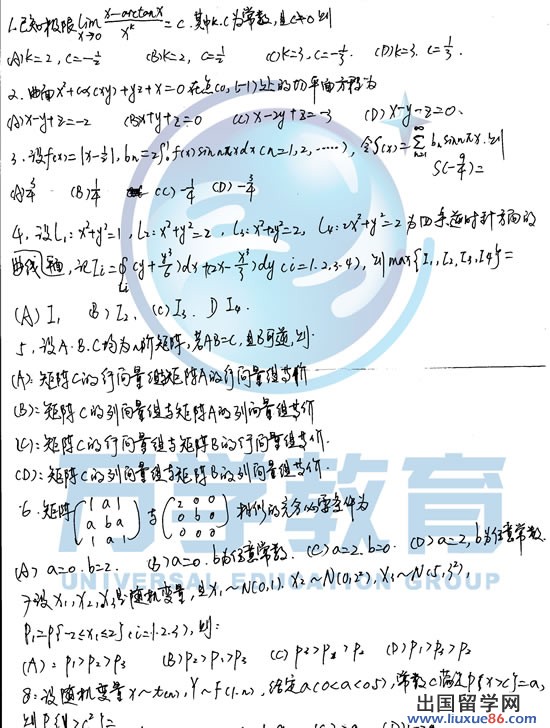 1.已知极限 lim x→0 (x-arctanx)/x^k = c. 其中k.c为常数,且c≠0 则
(A)k=2, c=-1/2 (B)k=2, c=1/2 (C)k=3, c=-1/3. (D)k=3. c=1/3.
2. 曲面x²+cos(xy)+yz+x=0在点(0,1,-1)处的切平面方程为
(A)x-y+z=-2 (B)x+y+z=0 (C)x-2y+z=-3 (D)x-y-z=0.
3.设f(x)=|x-1/2|, bn=2∫₀¹f(x)sinnπxdx(n=1,2,……), 令S(x)=∑ n=1 ∞ bn sinnπx.则
S(-9/4)=
(A)3/4 (B)1/4 (C)-1/4 (D)-3/4
4.设L₁:x²+y²=1, L₂:x²+y²=2, L₃:x²+2y²=2, L₄:2x²+y²=2为四条逆时针方向的
曲线, 记Ii=∮Li(y+y³/6)dx+(2x-x³/3)dy(i=1.2.3.4), 则max{I₁,I₂,I₃,I₄}=
(A) I₁ B) I₂. (C) I₃. D I₄.
5. 设A.B.C均为n阶矩阵,若AB=C,且B可逆,则.
(A):矩阵C的行向量组与矩阵A的行向量组等价
(B):矩阵C的列向量组与矩阵A的列向量组等价
(C):矩阵C的行向量组与矩阵B的行向量组等价.
(D):矩阵C的列向量组与矩阵B的列向量组等价.
6.矩阵(1 a 1 / a b a / 1 a 1)与(2 0 0 / 0 b 0 / 0 0 0)相似的充分必要条件为
(A) a=0.b=2. (B) a=0.b为任意常数. (C) a=2.b=0. (D) a=2, b为任意常数
7设X₁,X₂,X₃是随机变量,且X₁~N(0,1).X₂~N(0,2²),X₃~N(5,3²),
Pi=P{-2≤Xi≤2}(i=1.2.3),则:
(A): P₁>P₂>P₃ (B)P₂>P₁>P₃ (C) P₃>P₁>P₂ (D)P₁>P₃>P₂
8:设随机变量X~t(n), Y~F(1,n), 给定a(0<a<0.5),常数c满足P{X>c}=a,
则P{Y>c²}=
尚学教育
UNIVERSAL EDUCATION GROUP
出国留学网
www.liuxue86.com